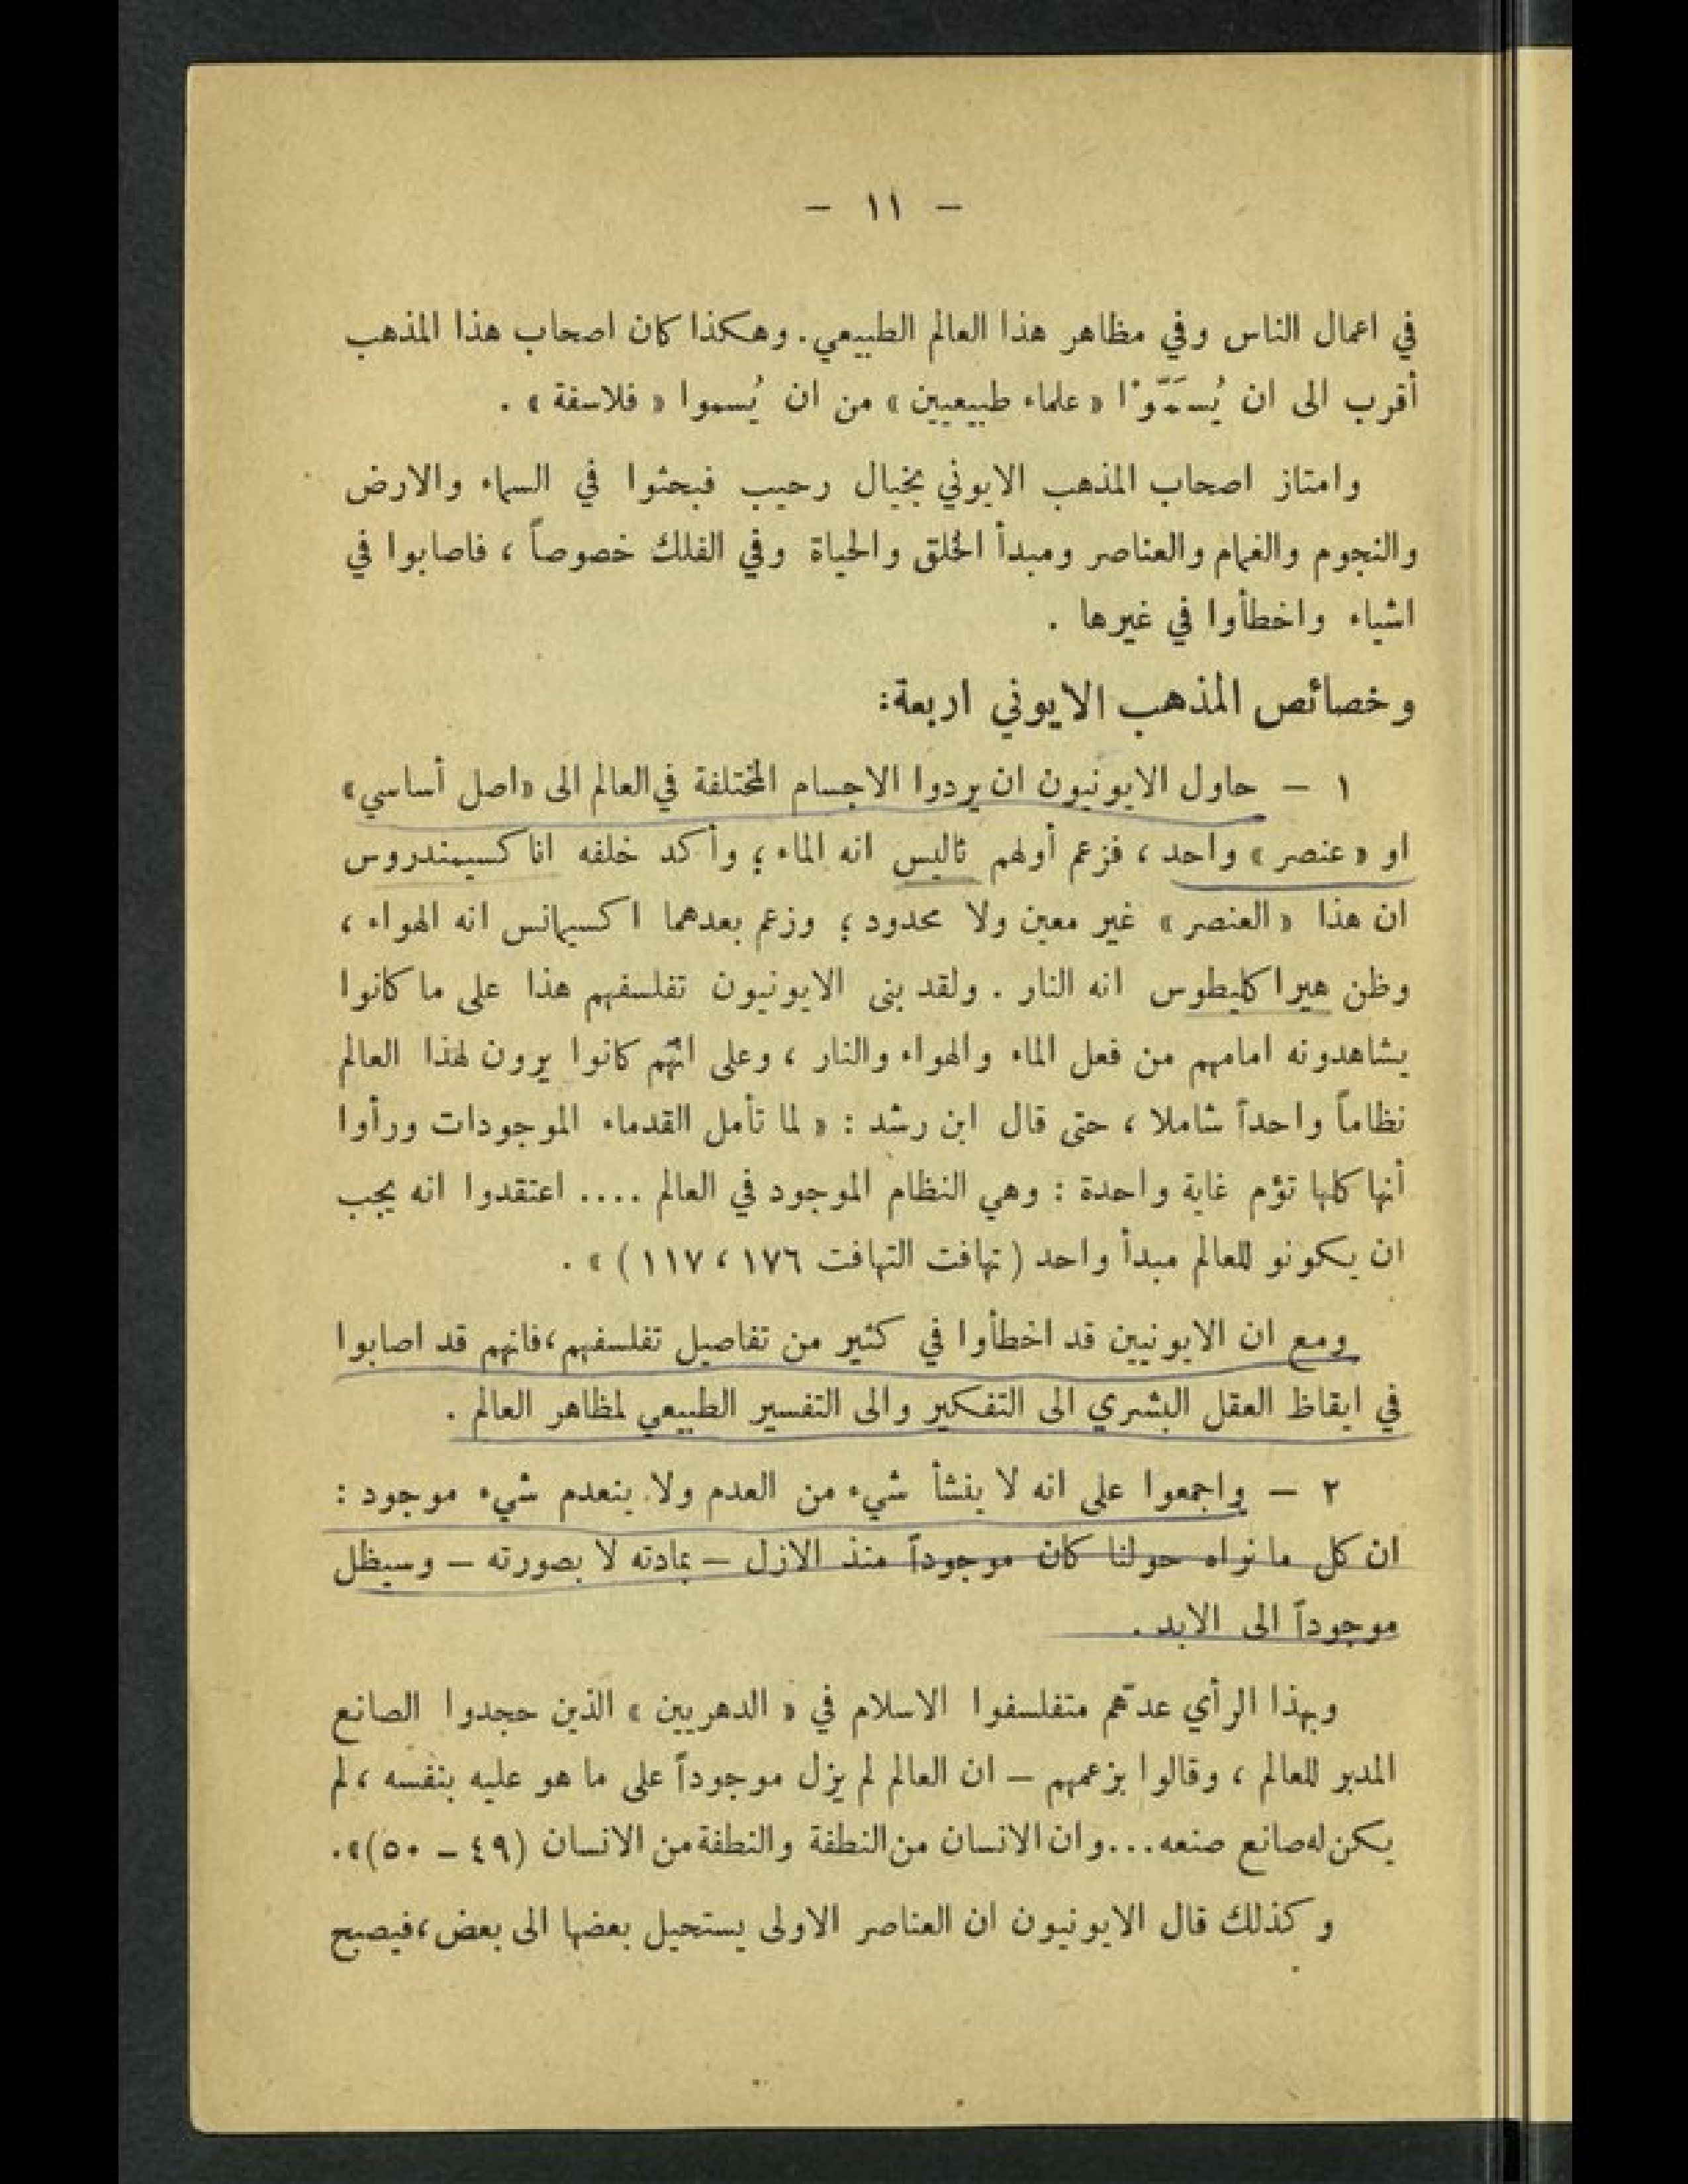 - ١١ -
في اعمال الناس وفي مظاهر هذا العالم الطبيعي. وهكذا كان اصحاب هذا المذهب
أقرب الى ان يُسَمَّوْا « علماء طبيعيين » من ان يُسموا « فلاسفة » .
وامتاز اصحاب المذهب الايوني بخيال رحيب فبحثوا في السماء والارض
والنجوم والغمام والعناصر ومبدأ الخلق والحياة وفي الفلك خصوصاً ، فاصابوا في
اشياء واخطأوا في غيرها .
وخصائص المذهب الايوني اربعة:
١ - حاول الايونيون ان يردوا الاجسام المختلفة في العالم الى «اصل أساسي»
او « عنصر » واحد ، فزعم أولهم ثاليس انه الماء ؛ وأكد خلفه اناكسيمندروس
ان هذا « العنصر » غير معين ولا محدود ؛ وزعم بعدهما اكسيمانس انه الهواء ،
وظن هيراكليطوس انه النار . ولقد بنى الايونيون تفلسفهم هذا على ما كانوا
يشاهدونه امامهم من فعل الماء والهواء والنار ، وعلى انهم كانوا يرون لهذا العالم
نظاماً واحداً شاملا ، حتى قال ابن رشد : « لما تأمل القدماء الموجودات ورأوا
أنها كلها تؤم غاية واحدة : وهي النظام الموجود في العالم .... اعتقدوا انه يجب
ان يكونو للعالم مبدأ واحد ( تهافت التهافت ١٧٦ ، ١١٧ ) » .
ومع ان الايونيين قد اخطأوا في كثير من تفاصيل تفلسفهم ،فانهم قد اصابوا
في ايقاظ العقل البشري الى التفكير والى التفسير الطبيعي لمظاهر العالم .
٢ - واجمعوا على انه لا ينشأ شيء من العدم ولا ينعدم شيء موجود :
ان كل ما نراه حولنا كان موجوداً منذ الازل - بمادته لا بصورته - وسيظل
موجوداً الى الابد .
وبهذا الرأي عدّهم متفلسفوا الاسلام في « الدهريين » الذين جحدوا الصانع
المدبر للعالم ، وقالوا بزعمهم - ان العالم لم يزل موجوداً على ما هو عليه بنفسه ،لم
يكن له صانع صنعه...وان الانسان من النطفة والنطفة من الانسان (٤٩ - ٥٠)».
وكذلك قال الايونيون ان العناصر الاولى يستحيل بعضها الى بعض ،فيصبح